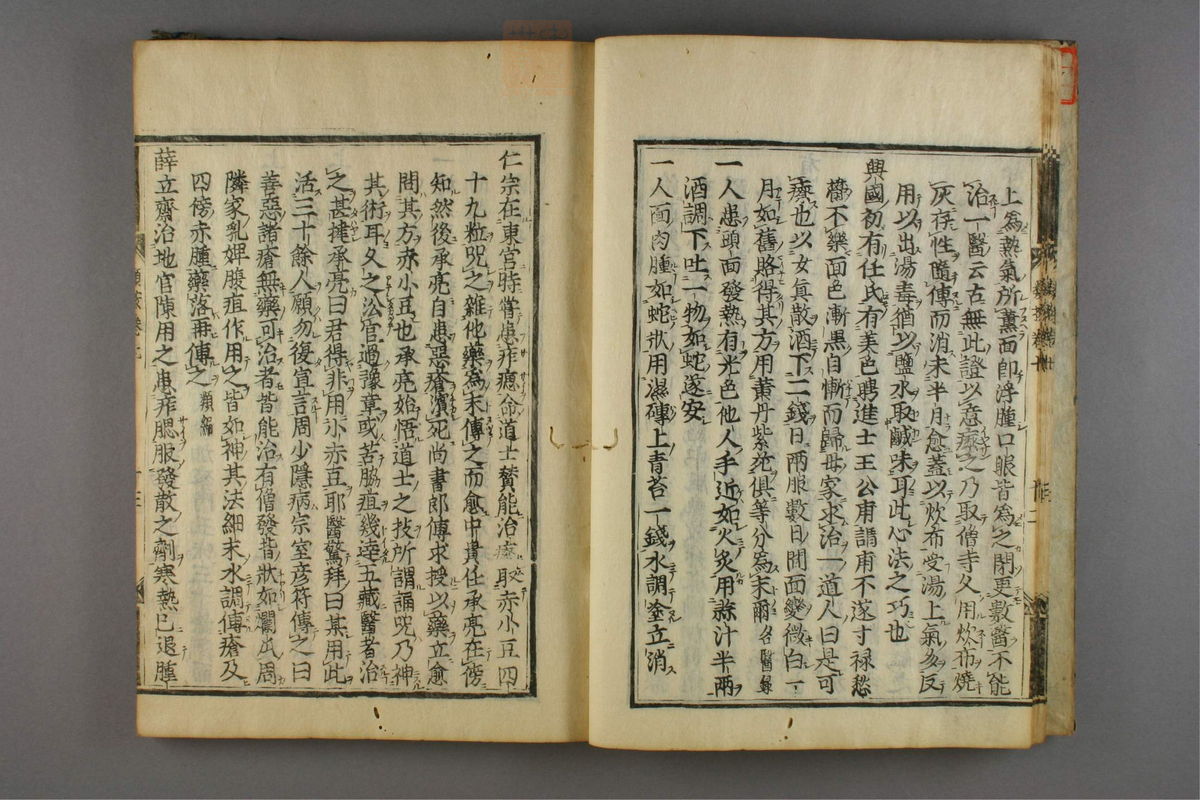 上為熱氣所薰面卽浮腫口眼皆為之閉更數醫不能
治一醫云古無此證以意療之乃取僧寺久用炊布燒
灰存性隨傅而消未半月愈蓋以炊布受湯上氣多反
用以出湯毒猶以鹽水取鹹味耳此心法之巧也
興國初有任氏有美色聘進士王公甫謂甫不遂寸祿愁
欝不樂面色漸黒自慚而歸母家求治一道人曰是可
療也以女眞散酒下二錢日兩服數日間面變微白一
月如舊賂得其方用黃丹紫菀俱等分為末爾名醫錄
一人患頭面發熱有光色他人手近如火炙用蒜汁半兩
酒調下吐一物如蛇遂安
一人面肉腫如蛇狀用濕磚上青苔一錢水調塗立消
仁宗在東宮時嘗患痄瘜命道士賛能治療取赤小豆四
十九粒咒之雜他藥為末傅之而愈中貴任承亮在傍
知然後承亮自患惡瘡濱死尚書郎傅求授以藥立愈
問其方赤小豆也承亮始悟道士之技所謂誦咒乃神
其術耳久之沿官過豫章或苦脇疽幾達五藏醫者治
之甚捷承亮曰君得非用小赤豆耶醫驚拜曰某用此
活三十餘人願勿復宣言周少隱病宗室彦符傅之曰
善惡諸瘡無藥可治者皆能治有僧發背狀如爛瓜周
隣家乳婢腹疽作用之皆如神其法細末水調傅瘡及
四傍赤腫藥落再傅之類編
薛立齋治地官陳用之患痄腮服發散之劑寒熱已退腫